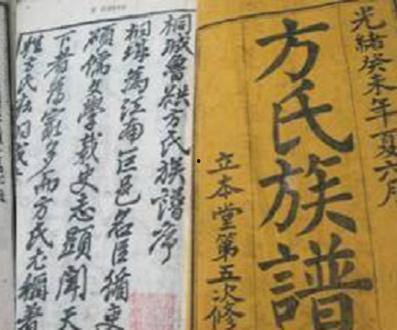 光緒癸未年夏六月
方氏族譜
立本堂第五次修
桐城魯谼方氏族譜序
桐城為江南巨邑名臣循吏
碩儒文學載史志顯聞天
下者舊家多而方氏尤稱著